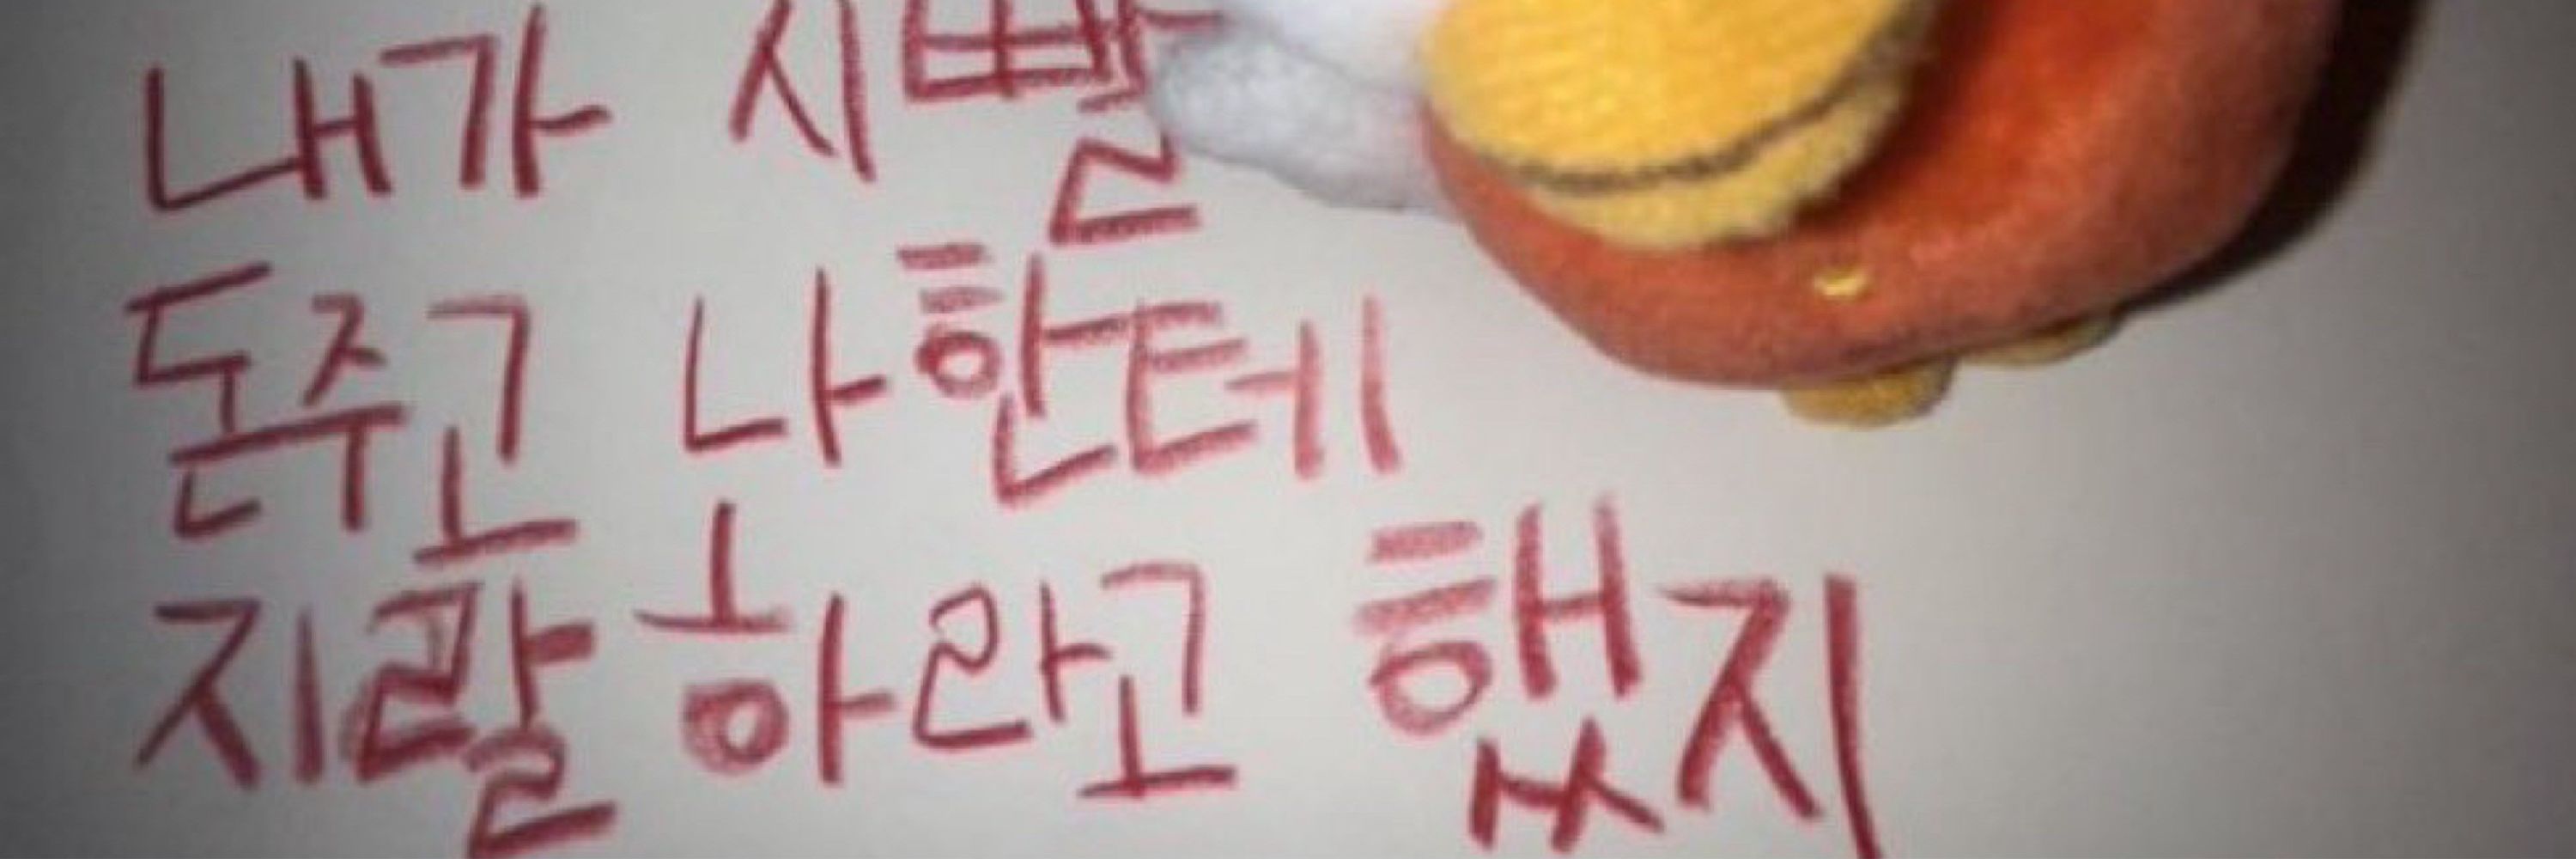 내가 시빨
돈주고 나한테
지랄하라고 했지